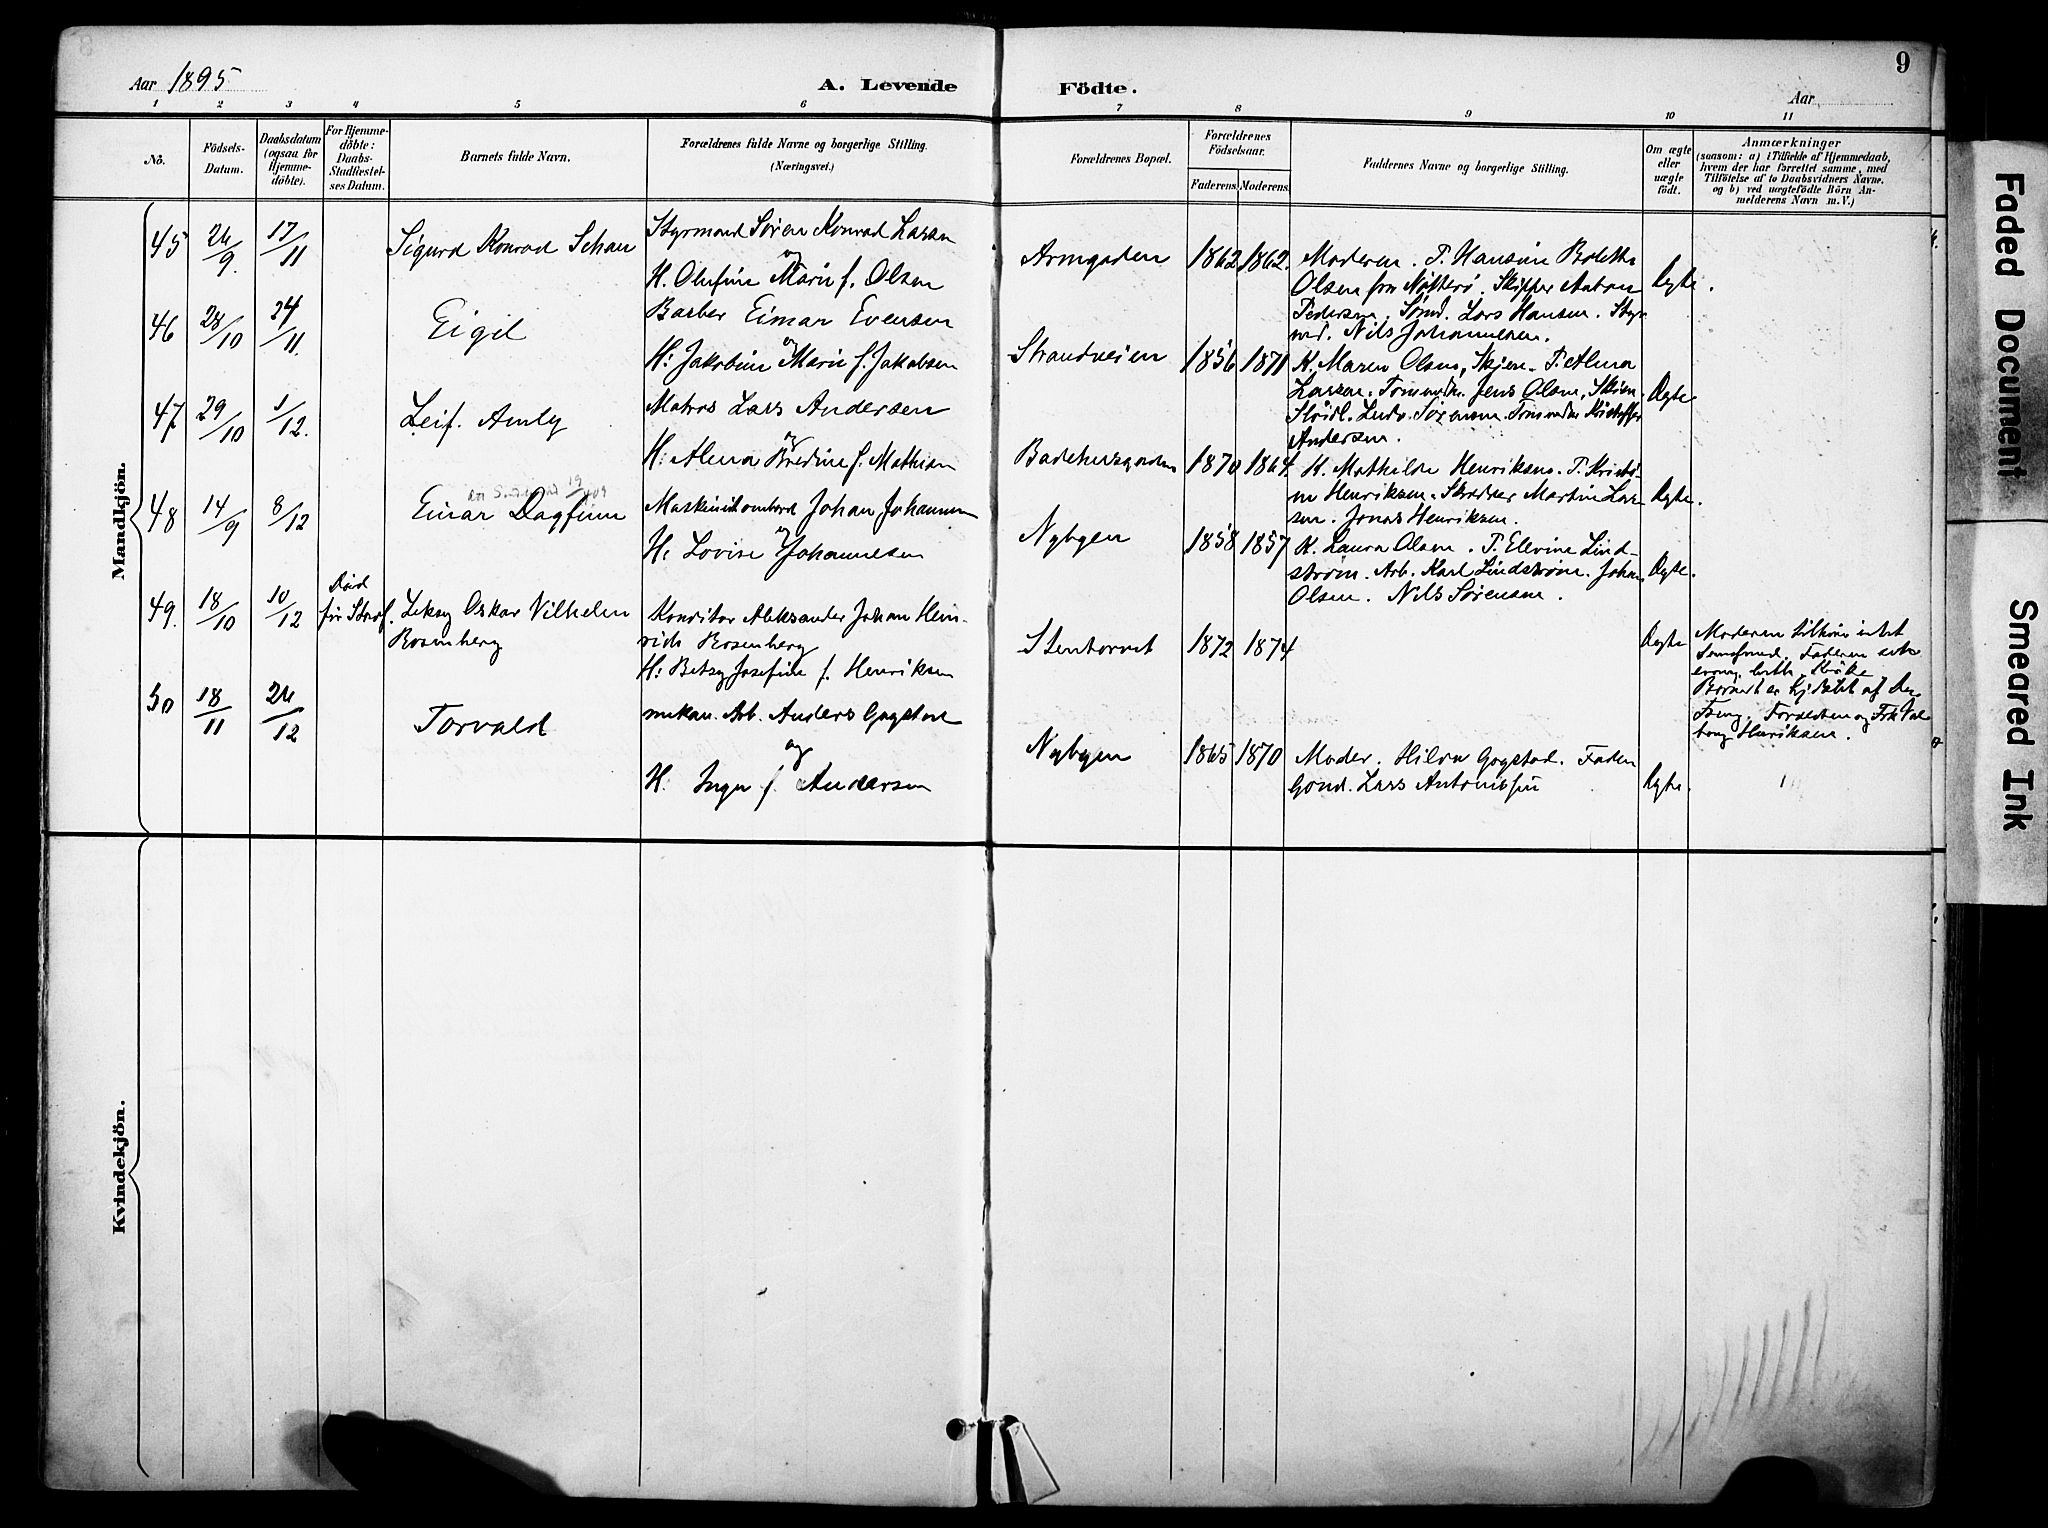 9
Aar 1895
A. Levende
Födte.
Aar
1 2 3 4 5 6 7 8 9 10 11
No.
Födsels-
Datum.
Daabsdatum
(ogsaa for
Hjemme-
döbte).
For Hjemme-
döbte:
Daabs-
Stadfæstel-
ses Datum.
Barnets fulde Navn.
Forældrenes fulde Navne og borgerlige Stilling.
(Næringsvei.)
Forældrenes Bopæl.
Forældrenes
Födselsaar.
Faderens. Moderens.
Faddernes Navne og borgerlige Stilling.
Om ægte
eller
uægte
födt.
Anmærkninger
(saasom: a) i Tilfælde af Hjemmedaab,
hvem der har forrettet samme, med
Tilföielse af to Daabsvidners Navne.
og b) ved uægtefödte Börn An-
melderens Navn m.V.)
Mandkjön.
45 24/9. 17/11 Sigurd Konrad
Styrmand Søren Konrad Larsen
og
H. Olufine Marie f. Olsen
Armgaden 1862 1862.
Moderen. P. Hansine Bolette
Olsen fra Nøtterø. Skipper Anton
Pedersen. Sømd. Lars Hansen. Styr
md. Nils Johannesen.
Ægte.
46 28/10 24/11. Eigil
Barber Eimar Evensen
og
H: Jakobine Marie f. Jakobsen
Strandveien 1856 1871
K. Maren Olsen, Skjen. P. Alma
Larsen. Tømmedm. Jens Olsen, Skien.
Ludv. Sørensen. Tømmedm Kristoffer
Andersen.
Ægte
47. 29/10 1/12. Leif. Amly
Matros Lars Andersen
og
H: Alma Bredine f. Mathisen
Badehusgaden 1870 1864.
K. Mathilde Henriksen. P. Kristi-
ne Henriksen. Skrædder Martin Lar-
sen. Jonas Henriksen.
Ægte.
48 14/9 8/12 Einar Dagfinn
19/ 09
Maskinist ombord Johan Johannesen
og
H: Lovise Johannesen
Nybyen 1858 1857
K. Laura Olsen. P. Elevine Lind-
strøm. Arb. Karl Lindstrøm. Johan
Olsen. Nils Sørensen.
Ægte.
49. 18/10 10/12 Død
før Stadf.
Leksy Oskar Vilhelm
Rosenberg
Konditor Aleksander Johan Hein-
rich Rosenberg
H: Betsy Josefine f. Henriksen
Stentorvet 1872 1874
Ægte
Moderen tilhører intet
Samfund. Faderen
evang. luth.
Barnet er hj. døbt af
Forældrene og Frk Val
borg Henriksen.
50 18/11 24/12 Torvald
mekan. Arb. Anders Gogstad
og
H. Inga f. Andersen
Nybyen 1865 1870
Moder. Hilda Gogstad. Faderen
Gmd. Lars Antonissen
Ægte.
Kvindekjön.
Faded Document
Smeared Ink